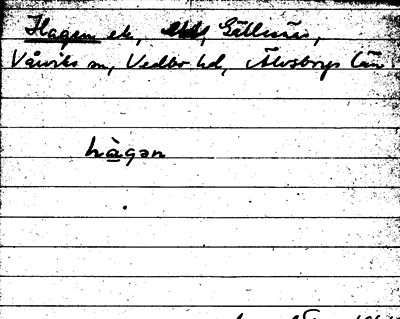 Hagen ek, Gällsnäs,
Vårviks sn, Vedbo hd, Älvsborgs län
hàgən